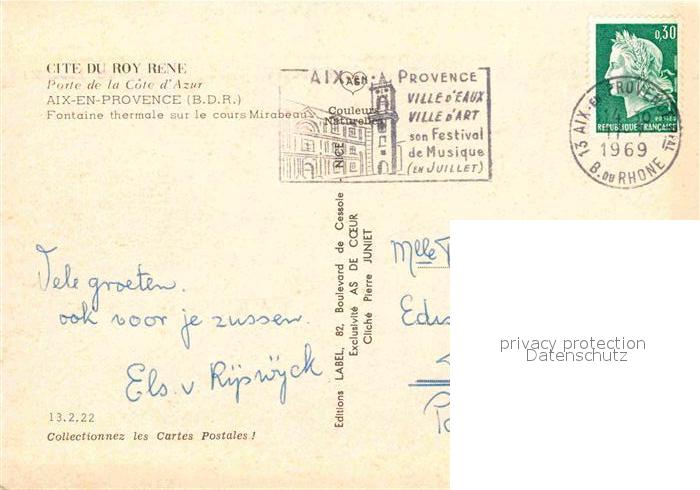 CITE DU ROY RENE
Porte de la Côte d'Azur
AIX-EN-PROVENCE (B.D.R.)
Fontaine thermale sur le cours Mirabeau
AIX EN PROVENCE
VILLE D'EAUX
VILLE D'ART
son Festival
de Musique
(EN JUILLET)
Couleurs
Naturelles
0,30
POSTES
REPUBLIQUE FRANÇAISE
13 AIX-EN-PROVENCE
1969
B. DU RHONE
Vele groeten.
ook voor je zussen.
Els. v Rijswijck
13.2.22
Collectionnez les Cartes Postales !
Editions LABEL, 82, Boulevard de Cessole - NICE
Exclusivité AS DE CŒUR
Cliché Pierre JUNIET
Mlle
privacy protection
Datenschutz